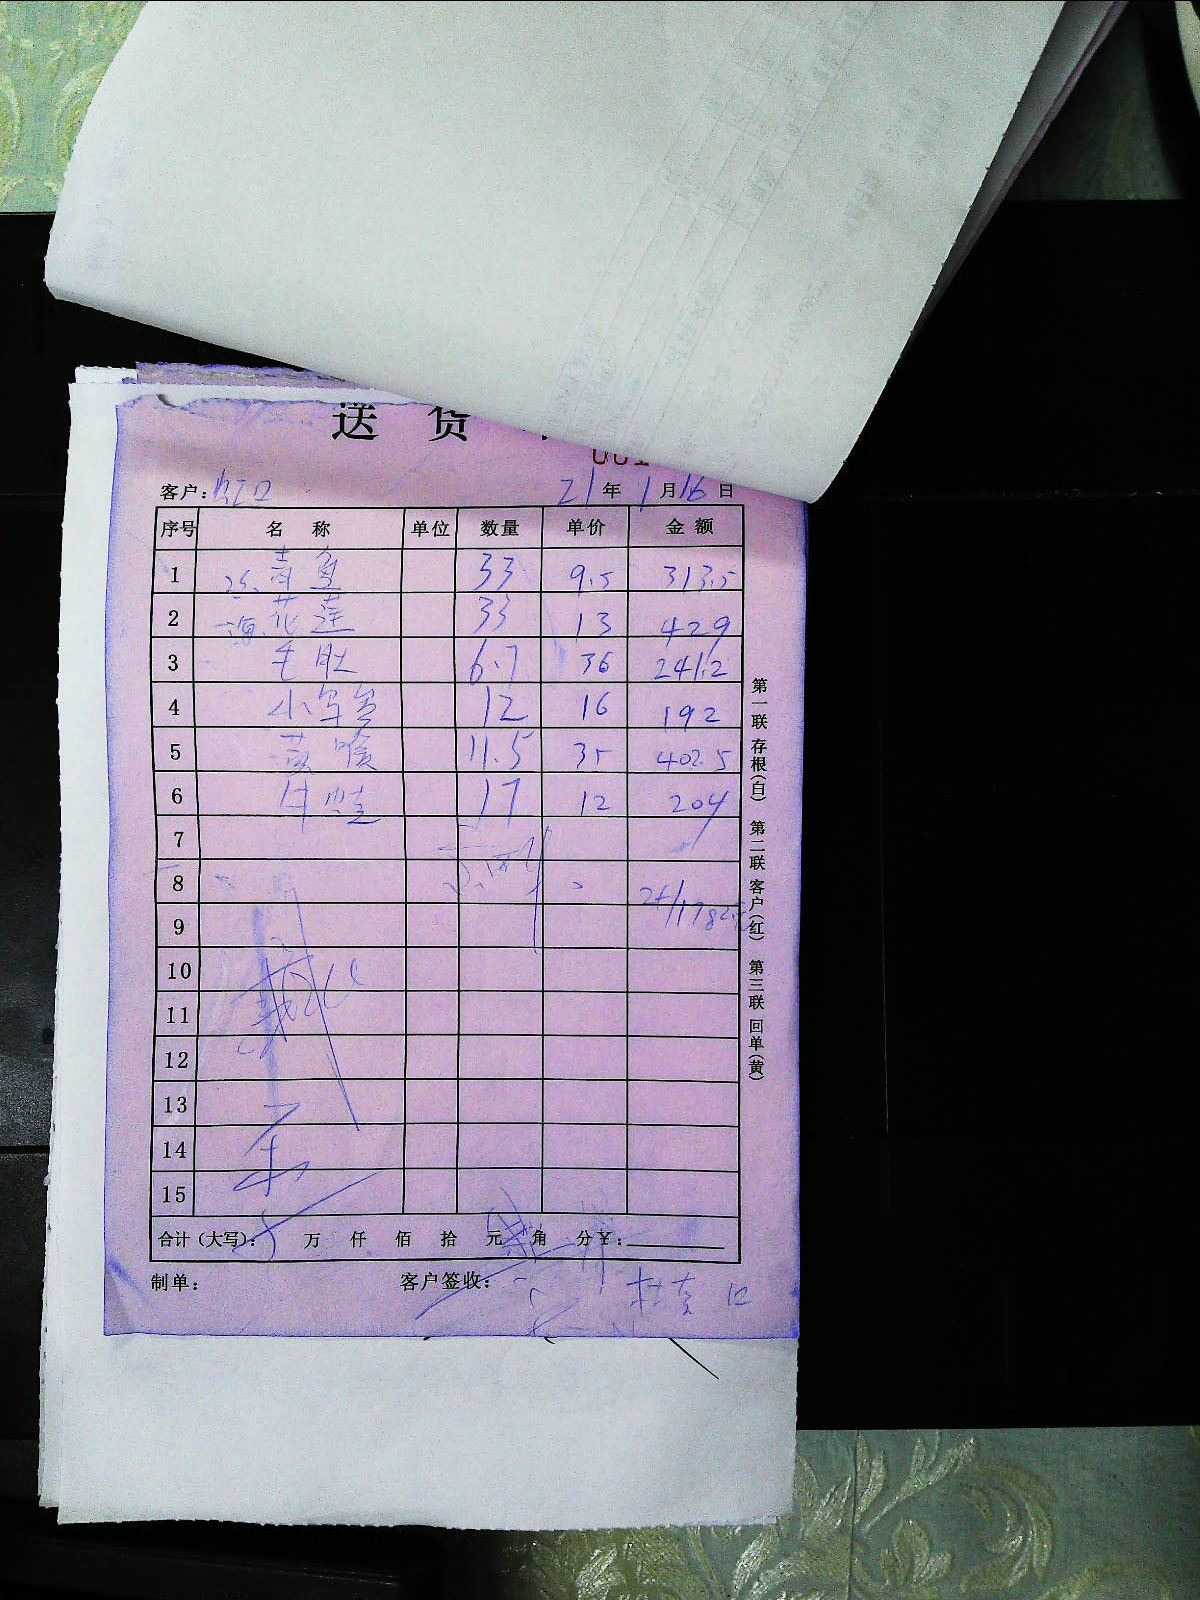 送 货
001
客户: 虹口 21年 1月16日
序号 名 称 单位 数量 单价 金 额
1 青鱼 33 9.5 313.5
2 花莲 33 13 429
3 毛肚 6.7 36 241.2
4 小军鱼 12 16 192
5 黄喉 11.5 35 402.5
6 牛蛙 17 12 204
7
8
9
10
11
12
13
14
15
合计（大写）: 万 仟 佰 拾 元 角 分¥:
制单: 客户签收:
第一联 存根(白) 第二联 客户(红) 第三联 回单(黄)